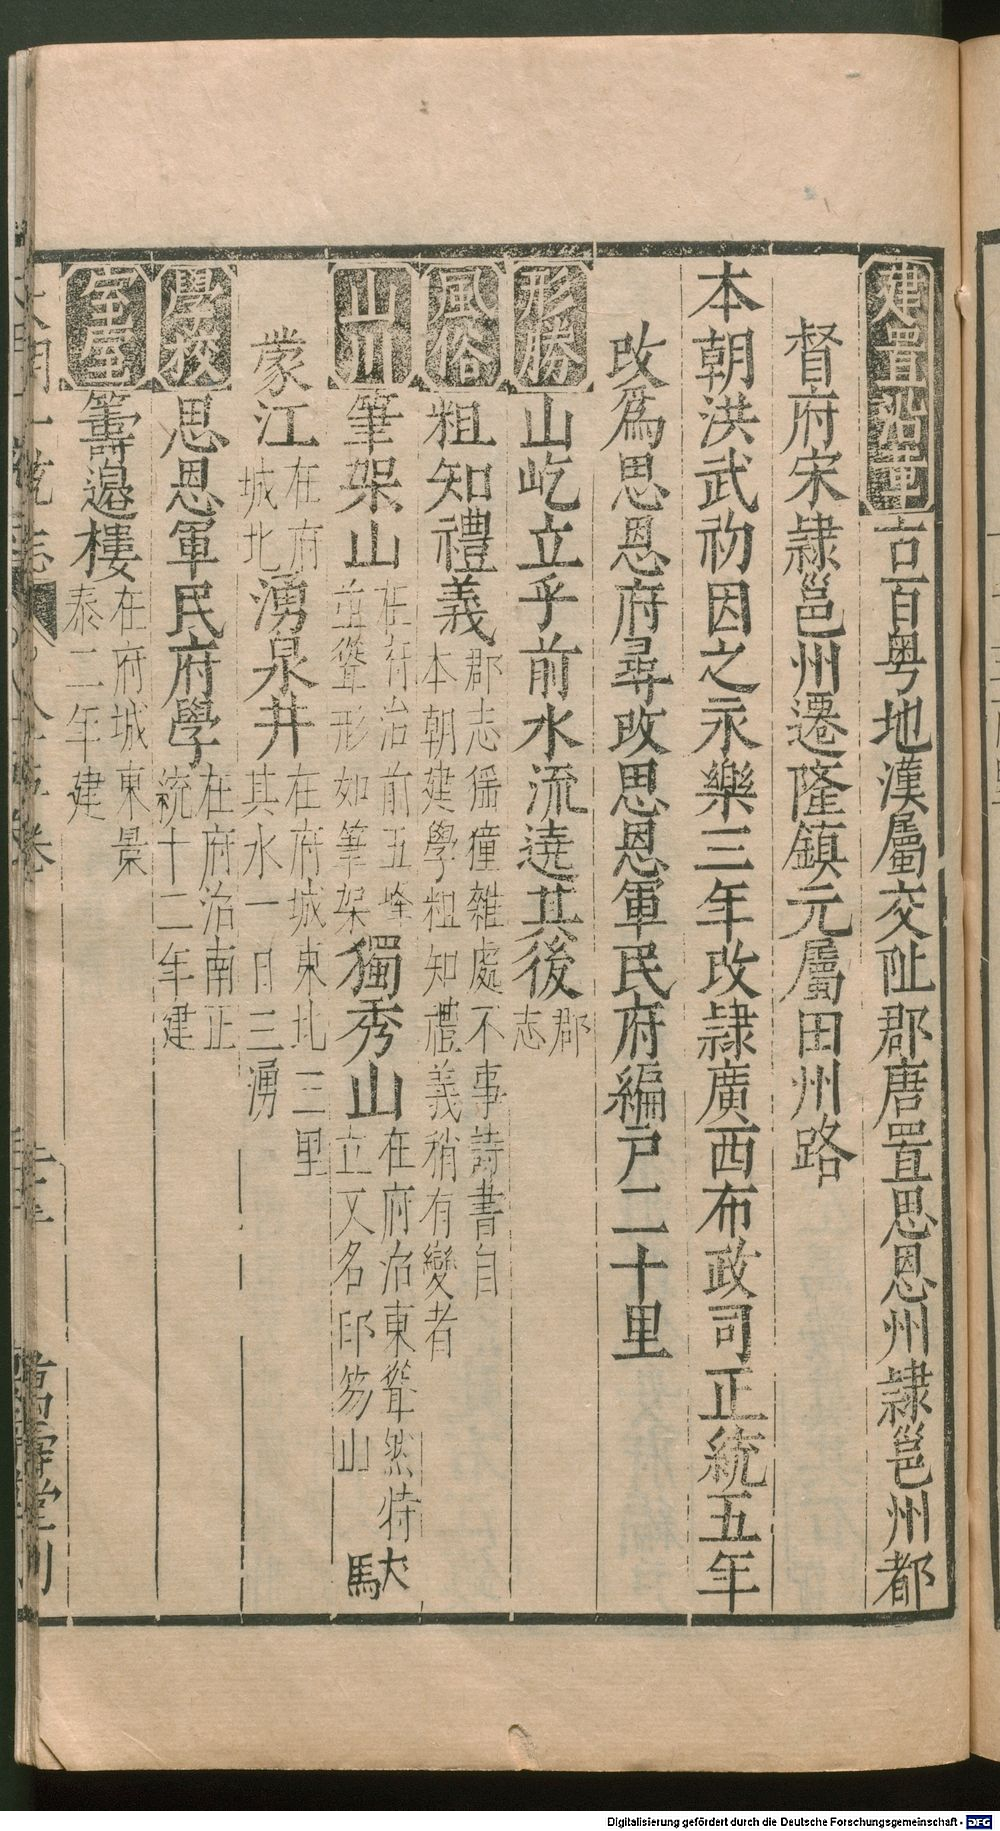 建置沿革古百粤地漢屬交阯郡唐置思恩州隷邕州都
督府宋隷邕州遷隆鎮元屬田州路
本朝洪武初因之永樂三年改隷廣西布政司正統五年
改爲思恩府尋改思恩軍民府編戸二十里
形勝山屹立乎前水流遶其後郡
志
風俗粗知禮義郡志猺獞雜處不事詩書自
本朝建學粗知禮義稍有變者
山川筆架山在府治前五峰
並聳形如筆架獨秀山在府治東聳然特
立又名印笏山馱
蒙江在府
城北湧泉井在府城東北三里
其水一日三湧
學校思恩軍民府學在府治南正
統十二年建
室屋籌邉樓在府城東景
泰二年建
大明一統志 八十五卷 萬壽堂刊
Digitalisierung gefördert durch die Deutsche Forschungsgemeinschaft - DFG